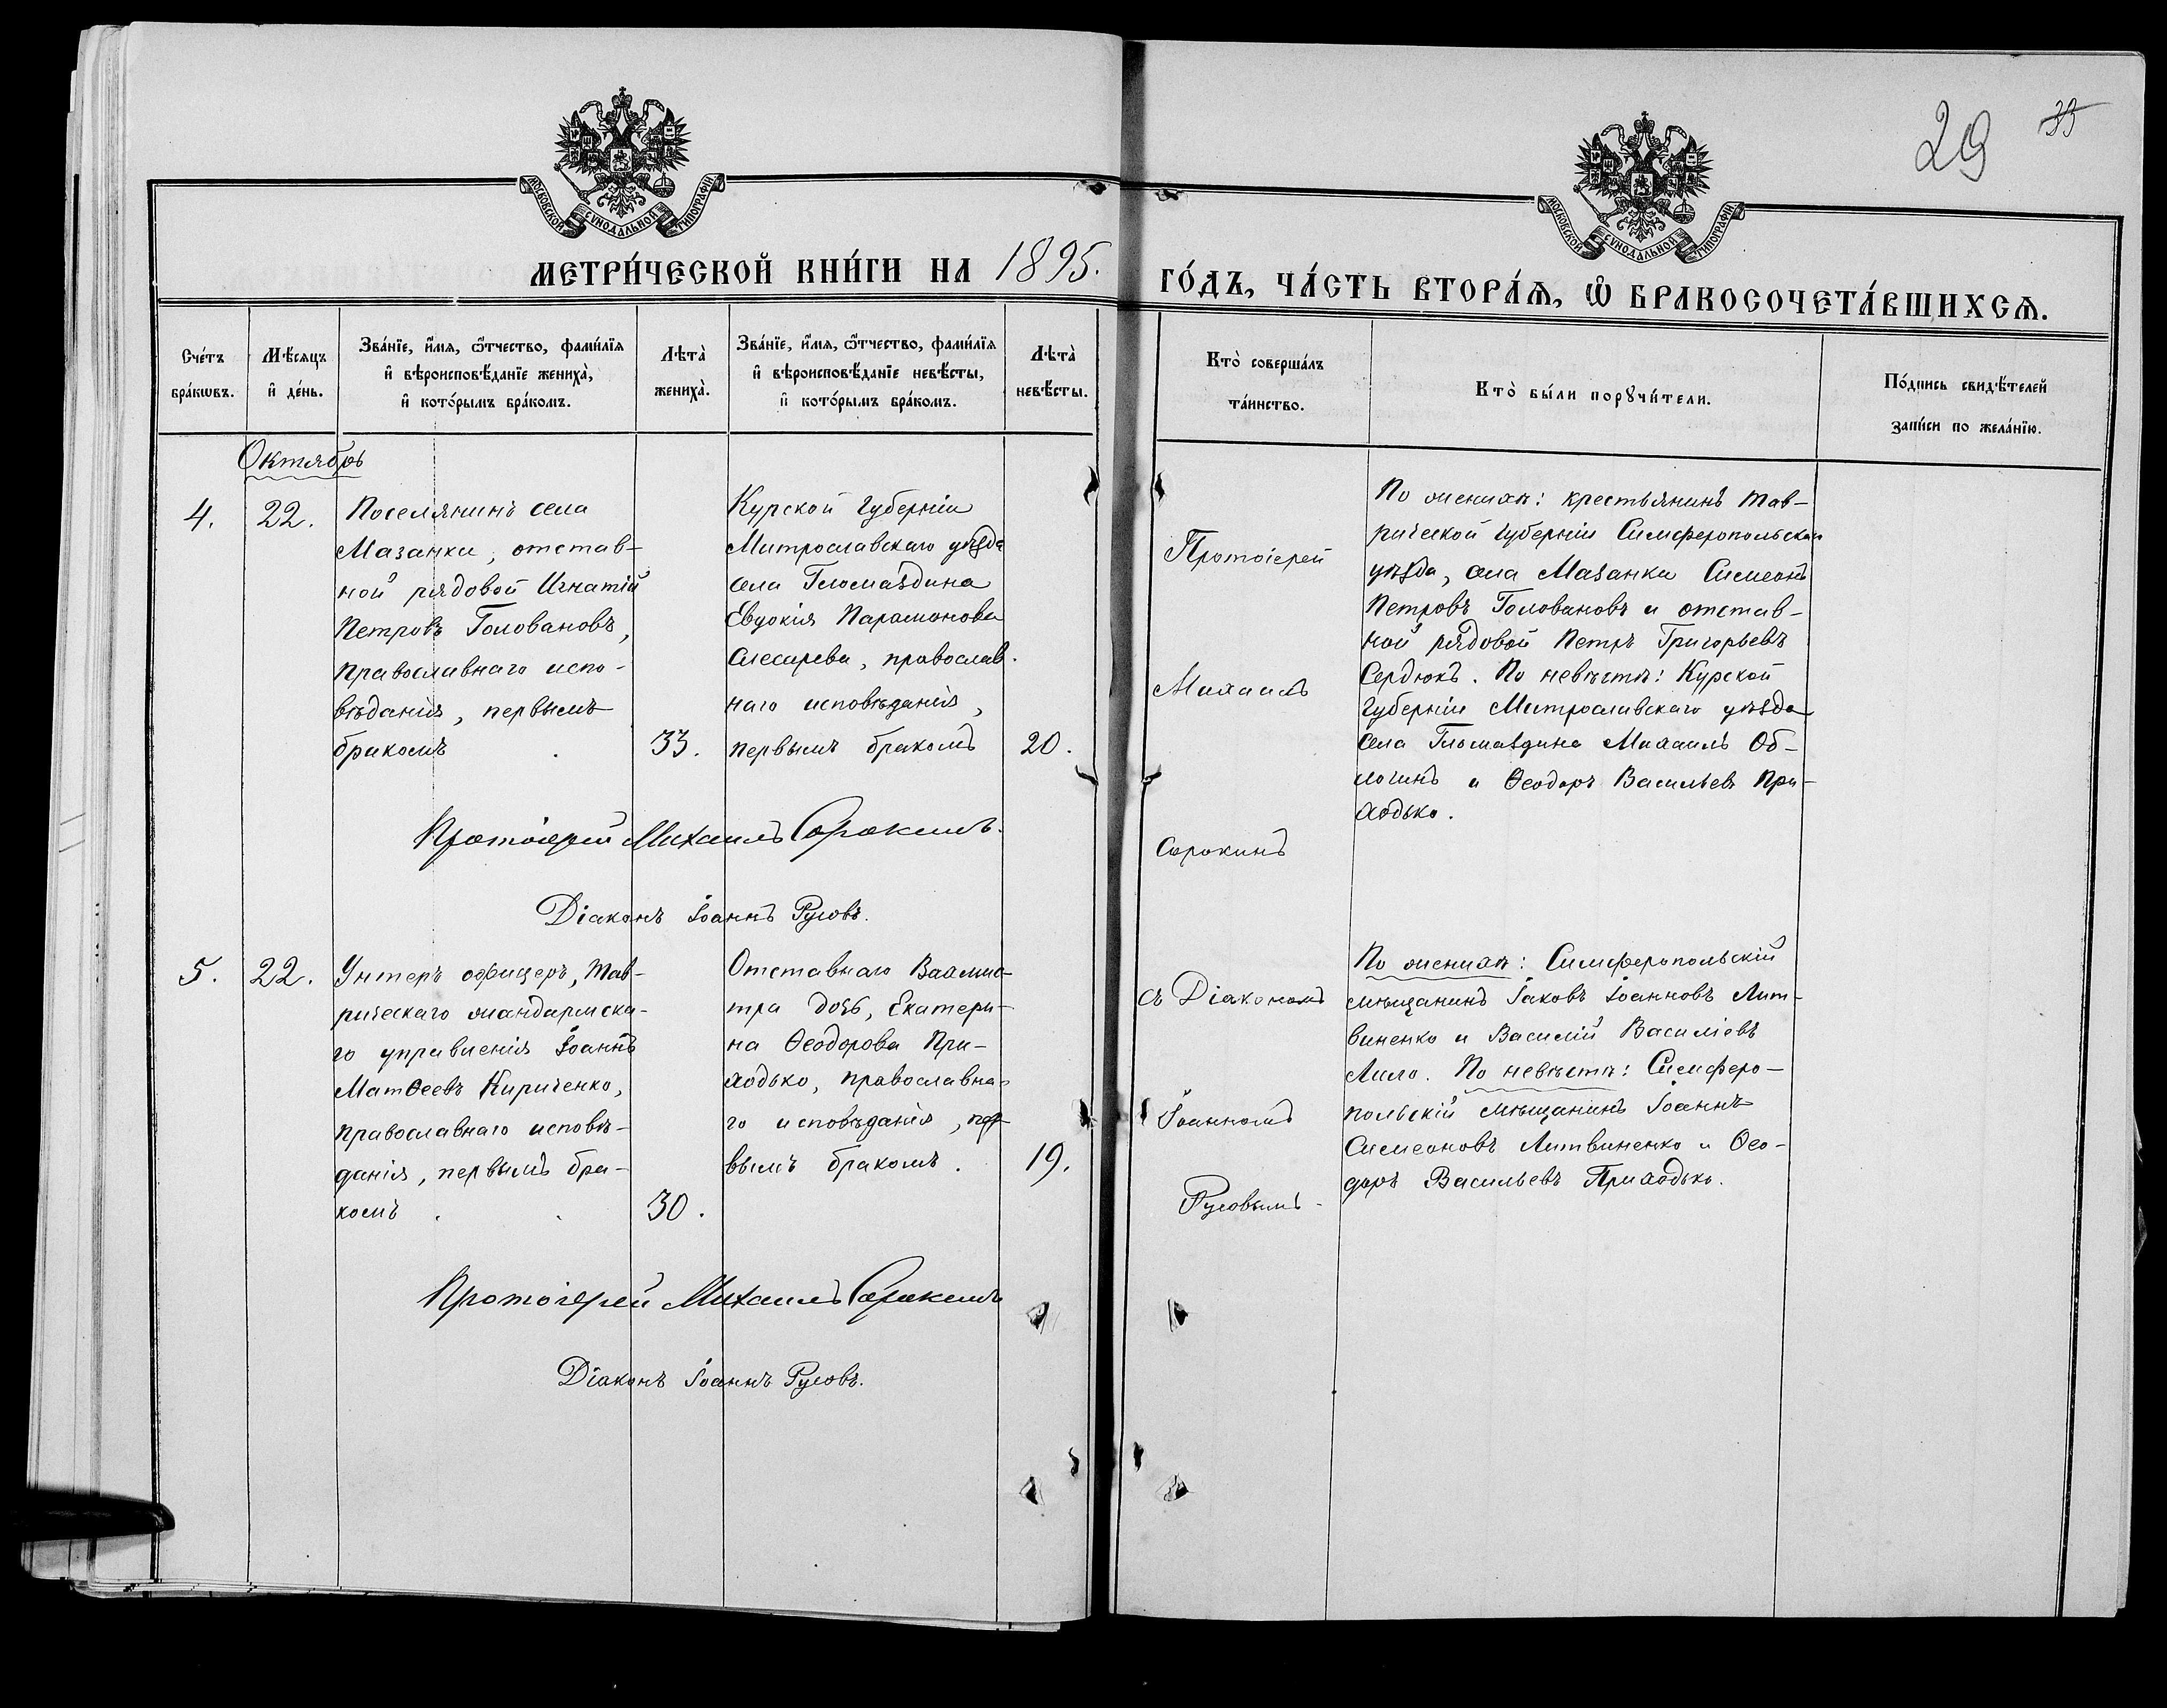 29 35
МОСКОВСКОЙ СѴНОДАЛЬНОЙ ТИПОГРАФІИ
МОСКОВСКОЙ СѴНОДАЛЬНОЙ ТИПОГРАФІИ
МЕТРИ́ЧЕСКОЙ КНИ́ГИ НА 1895.
ГО́ДЪ, ЧА́СТЬ ВТОРА́Я, Ѽ БРАКОСОЧЕТА́ВШИХСЯ.
Сче́тъ
бра́кωвъ.
Мѣ́сяцъ
и҆ де́нь.
Зва́нїе, и҆́мя, ѻ҆́тчество, фами́лїя
и҆ вѣроисповѣ́данїе жениха̀,
и҆ кото́рымъ бра́комъ.
Лѣта̀
жениха̀.
Зва́нїе, и҆́мя, ѻ҆́тчество, фами́лїя
и҆ вѣроисповѣ́данїе невѣ́сты,
и҆ кото́рымъ бра́комъ.
Лѣта̀
невѣ́сты.
Кто̀ соверша́лъ
та́инство.
Кто̀ бы́ли порꙋчи́тели.
По́дпись свидѣ́телей
за́писи по жела́нїю.
Октябрь
4.
22.
Поселянинъ села
Мазанки, отстав-
ной рядовой Игнатій
Петровъ Головановъ,
православнаго испо-
вѣданія, первымъ
бракомъ
33.
Курской губерніи
Митрославскаго уѣзда
села
Евдокія Парамонова
Слесарева, православ-
наго исповѣданія,
первымъ бракомъ
20.
Протоіерей
Михаилъ
Сорокинъ
По женихѣ: крестьянинъ Тав-
рической губерніи Симферопольскаго
уѣзда, села Мазанки Симеонъ
Петровъ Головановъ и отстав-
ной рядовой Петръ Григорьевъ
Сердюкъ. По невѣстѣ: Курской
губерніи Митрославскаго уѣзда
села Михаилъ Об-
логинъ и Ѳеодоръ Васильевъ При-
ходько.
Протоіерей Михаилъ Сорокинъ.
Діаконъ Іоаннъ Русовъ.
5.
22.
Унтеръ офицеръ, Тав-
рическаго жандармска-
го управленія Іоаннъ
Матѳеевъ Кириченко,
православнаго исповѣ-
данія, первымъ бра-
комъ
30.
Отставнаго Вахми-
тра дочь, Екатери-
на Ѳеодорова При-
ходько, православна-
го исповѣданія, пер-
вымъ бракомъ.
19.
съ Діакономъ
Іоанномъ
Русовымъ
По женихѣ: Симферопольскій
мѣщанинъ Іаковъ Іоанновъ Лит-
виненко и Василій Василіевъ
Лило. По невѣстѣ: Симферо-
польскій мѣщанинъ Іоаннъ
Симеоновъ Литвиненко и Ѳео-
доръ Васильевъ Приходько.
Протоіерей Михаилъ Сорокинъ
Діаконъ Іоаннъ Русовъ.